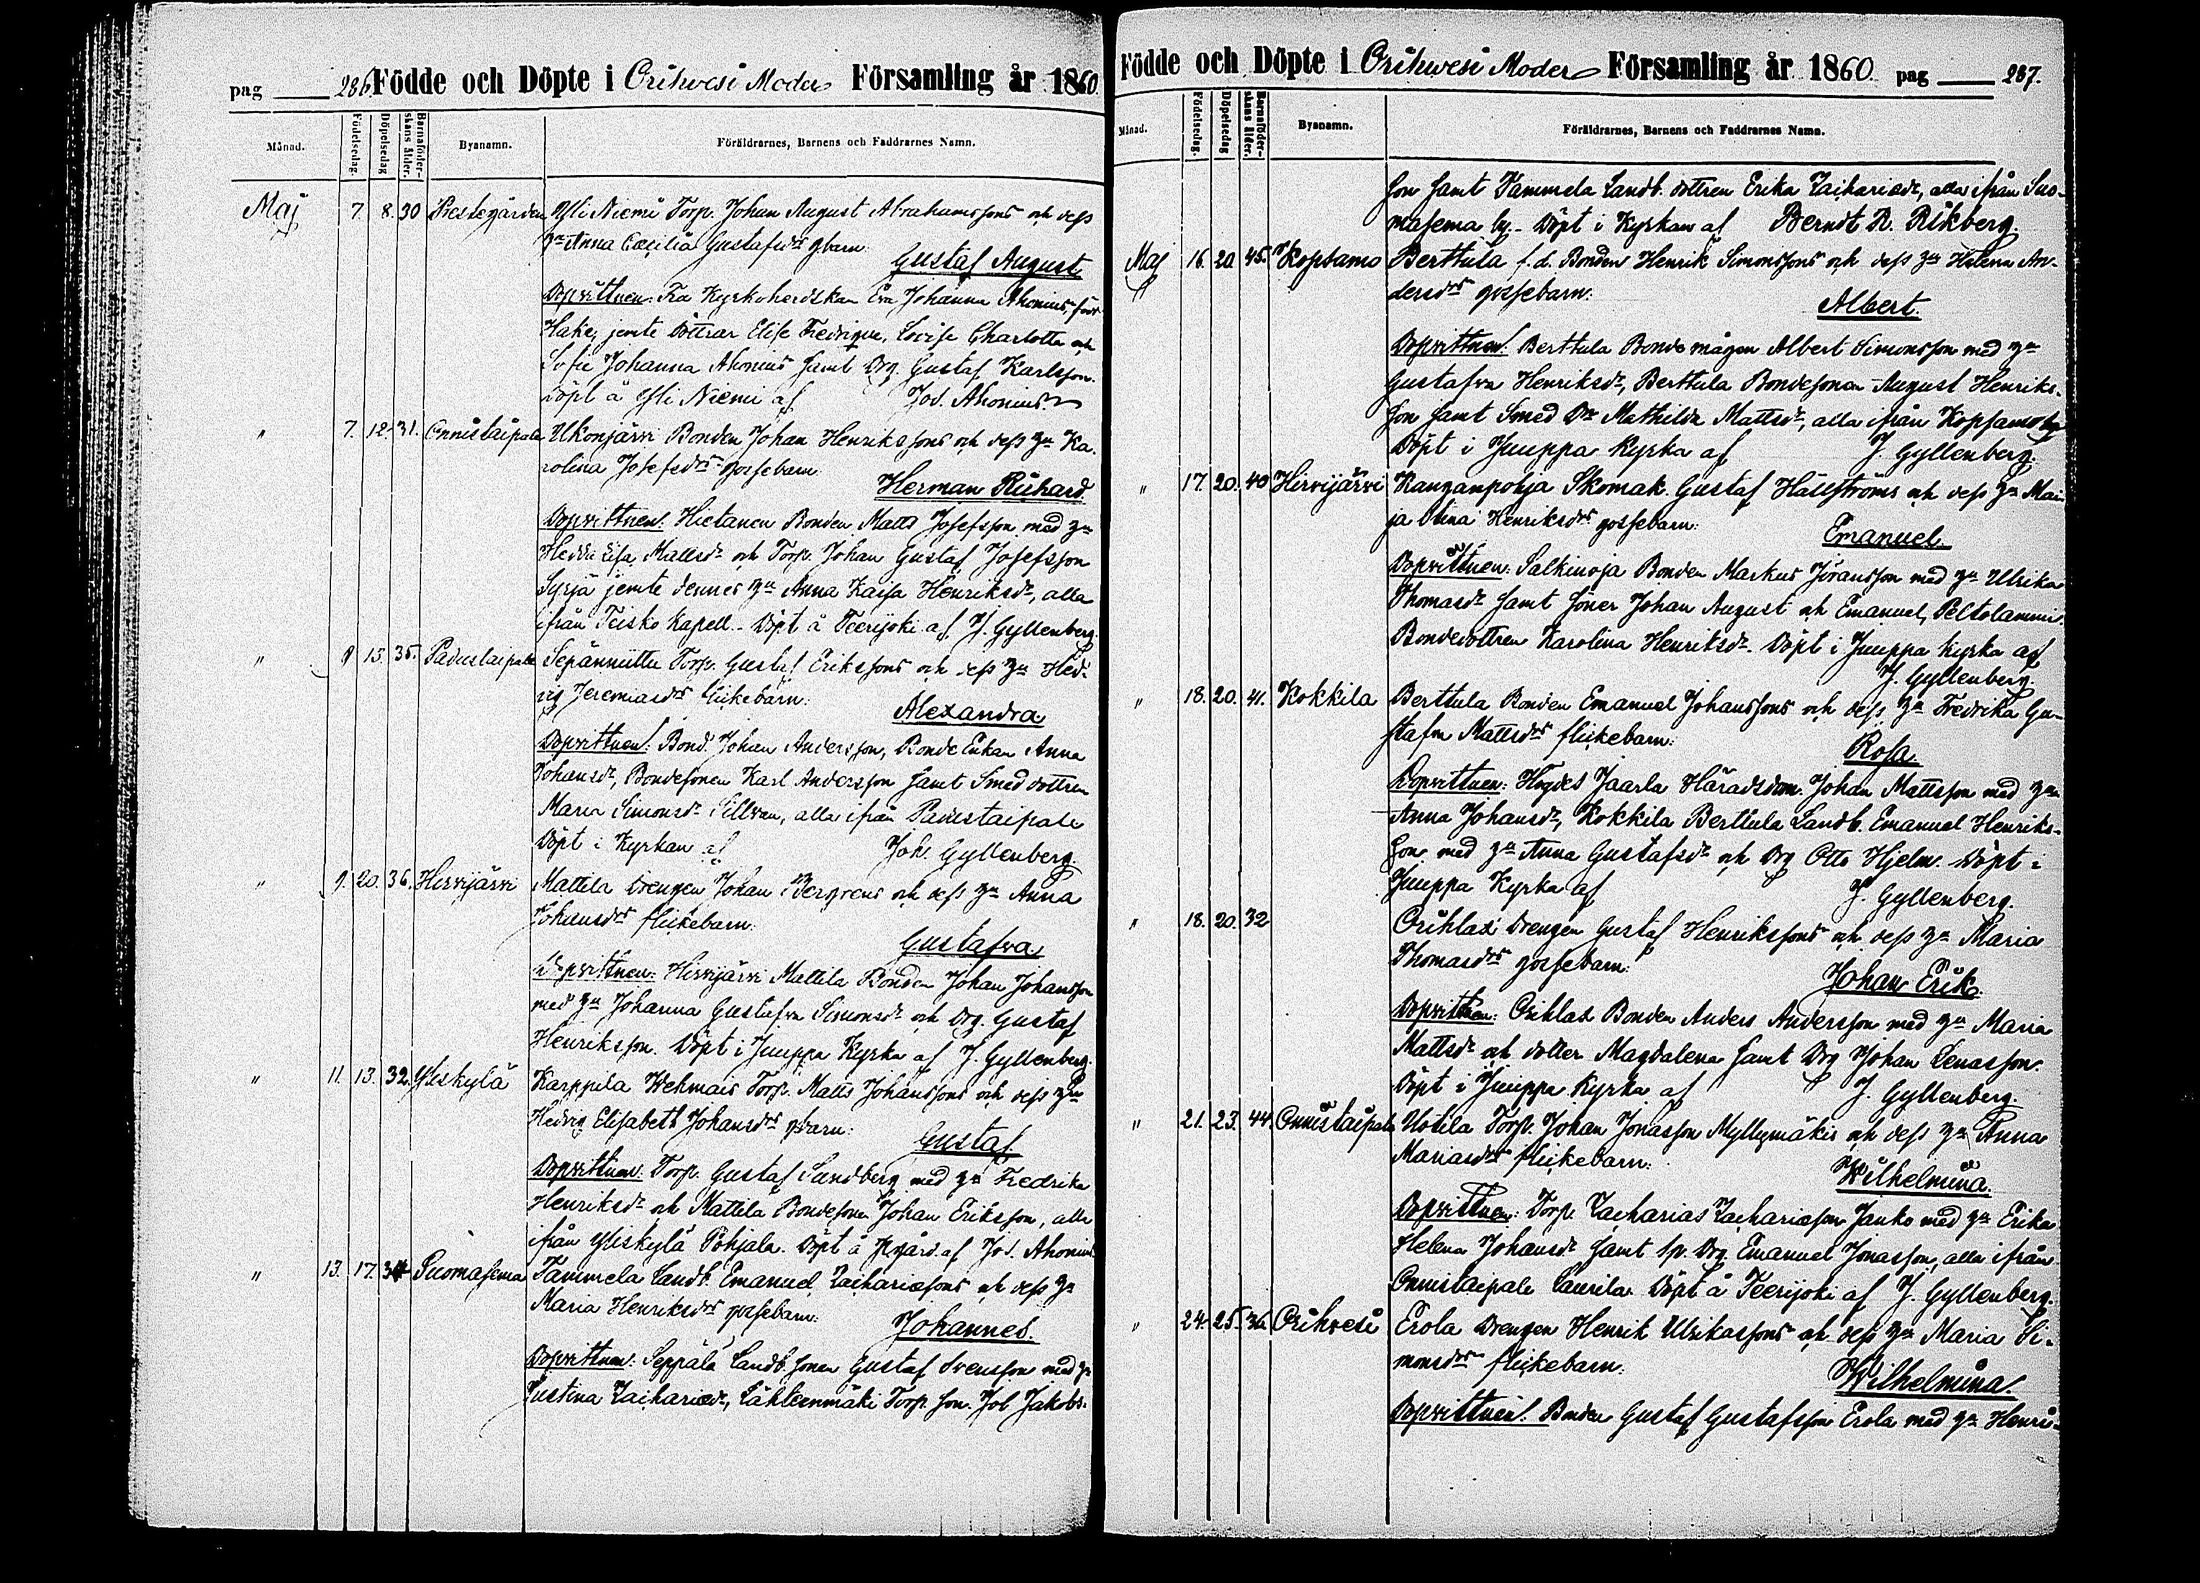 pag 286. Födde och Döpte i Orihvesi Moder Församling år 1860.
Månad. Födelsedag. Döpelsedag Barnaföderskans ålder. Byanamn. Föräldrarnes, Barnens och Faddrarnes Namn.
Maj 7. 8. 30 Prestegården Yli Niemi Torp. Johan August Abrahamssons och dess
hu Anna Cæcilia Gustafsdrs gbarn:
Gustaf August
Dopvittnen: Fru Kyrkoherdskan Eva Johanna Ahonius, född
Hake, jemte döttrar Elise Fredrique, Lovise Charlotta och
Sofie Johanna Ahonius samt Drg. Gustaf Karlsson.
Döpt å Yli Niemi af Jos. Ahonius.
" 7. 12. 31. Onnistaipale Ukonjärvi Bonden Johan Henrikssons och dess hu Ka-
rolina Josefsdrs gossebarn
Herman Richard.
Dopvittnen: Hietanen Bonden Matts Josefsson med hu
Hedda Lisa Mattsdr och Torp. Johan Gustaf Josefsson
Syrjä jemte dennes hu Anna Kaisa Henriksdr, alla
ifrån Teisko Kapell. Döpt å Teerijoki af J. Gyllenberg.
" 9 15. 35. Padustaipale Sepänniittu Torp. Gustaf Erikssons och dess hu Hed-
vig Jeremiasdrs flickebarn:
Alexandra
Dopvittnen: Bond. Johan Andersson, Bonde Enkan Anna
Johansdr, Bondesonen Karl Andersson samt Smed dottren
Maria Simonsdr Sillvan, alla ifrån Padustaipale
Döpt i Kyrkan af Joh. Gyllenberg.
" 9. 20. 36. Hirvijärvi Mattila Drengen Johan Bergrens och dess hu Anna
Johansdrs flickebarn:
Gustafva
Dopvittnen: Hirvijärvi Mattila Bonden Johan Johansson
med hu Johanna Gustafva Simonsdr och Drg. Gustaf
Henriksson. Döpt i Juuppa Kyrka af J. Gyllenberg.
" 11. 13. 32. Yliskylä Karppila Wehmais Torp. Matts Johanssons och dess hu
Hedvig Elisabeth Johansdrs gbarn:
Gustaf
Dopvittnen: Torp. Gustaf Sandberg med hu Fredrika
Henriksdr och Mattila Bondesonen Johan Eriksson, alla
ifrån Yliskylä Pohjala. Döpt å Pgård. af Jos. Ahonius
" 13. 17. 34 Suomasema Tammela Landb. Emanuel Zachariæsons och dess hu
Maria Henriksdrs gossebarn:
Johannes.
Dopvittnen: Seppälä Landb. sonen Gustaf Svensson med hu
Justina Zachariædr, Lähteenmäki Torp. son. Job Jakobs-
Födde och Döpte i Orihwesi Moder Församling år 1860 pag 287.
Månad. Födelsedag. Döpelsedag Barnaföderskans ålder. Byanamn. Föräldrarnes, Barnens och Faddrarnes Namn.
son samt Tammela Landb. dottren Erika Zachariædr, alla ifrån Suo-
masema by. Döpt i Kyrkan af Berndt R. Rikberg.
Maj 16. 20. 45. Kopsamo Berttula f.d. Bonden Henrik Simonssons och dess hu Helena An-
dersdrs gossebarn:
Albert.
Dopvittnen: Berttula Bonde mågen Albert Simonsson med hu
Gustafva Henriksdr, Berttula Bondesonen August Henriks-
son samt Smed Dr Mathilda Mattsdr, alla ifrån Kopsamo by
Döpt i Juuppa Kyrka af J. Gyllenberg.
" 17. 20. 40 Hirvijärvi Kanganpohja Skomak. Gustaf Hällströms och dess hu Mai-
ja Stina Henriksdrs gossebarn:
Emanuel
Dopvittnen: Salkinoja Bonden Markus Jöransson med hu Ulrika
Thomasdr samt söner Johan August och Emanuel, Peltolammi
Bondedottren Karolina Henriksdr. Döpt i Juuppa kyrka af
J. Gyllenberg.
" 18. 20. 41. Kokkila Berttula Bonden Emanuel Johanssons och dess hu Fredrika Gu-
stafva Mattsdrs flickebarn:
Rosa
Dopvittnen: Jaarla Häradsdom. Johan Mattsson med hu
Anna Johansdr, Kokkila Berttula Landb. Emanuel Henriks-
son med hu Anna Gustafsdr och Drg Otto Hjelm. Döpt i
Juuppa Kyrka af J. Gyllenberg.
" 18. 20. 32 Orihlax Drengen Gustaf Henrikssons och dess hu Maria
Thomasdrs gossebarn:
Johan Erik
Dopvittnen: Orihlax Bonden Anders Andersson med hu Maria
Mattsdr och dotter Magdalena samt Drg Johan Lenasson.
Döpt i Juuppa Kyrka af J. Gyllenberg.
" 21. 23. 44. Onnistaipale Uotila Torp. Johan Jonasson Myllymäkis och dess hu Anna
Mariasdrs flickebarn:
Wilhelmina.
Dopvittnen: Torp. Zacharias Zachariæson Janko med hu Erika
Helena Johansdr samt Sp. Drg. Emanuel Jonasson, alla ifrån
Onnistaipale Laurila. Döpt å Teerijoki af J. Gyllenberg.
" 24. 25. 36. Orihvesi Erola Drengen Henrik Ulrikassons och dess hu Maria Si-
monsdrs flickebarn:
Wilhelmina.
Dopvittnen: Bonden Gustaf Gustafsson Erola med hu Henri-